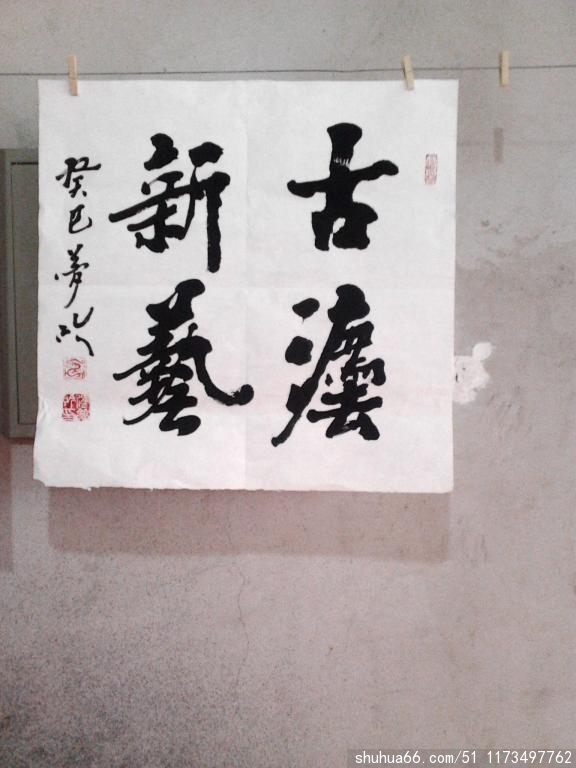 古灋
新藝
癸巳夢
shuhua66.com/51 1173497762